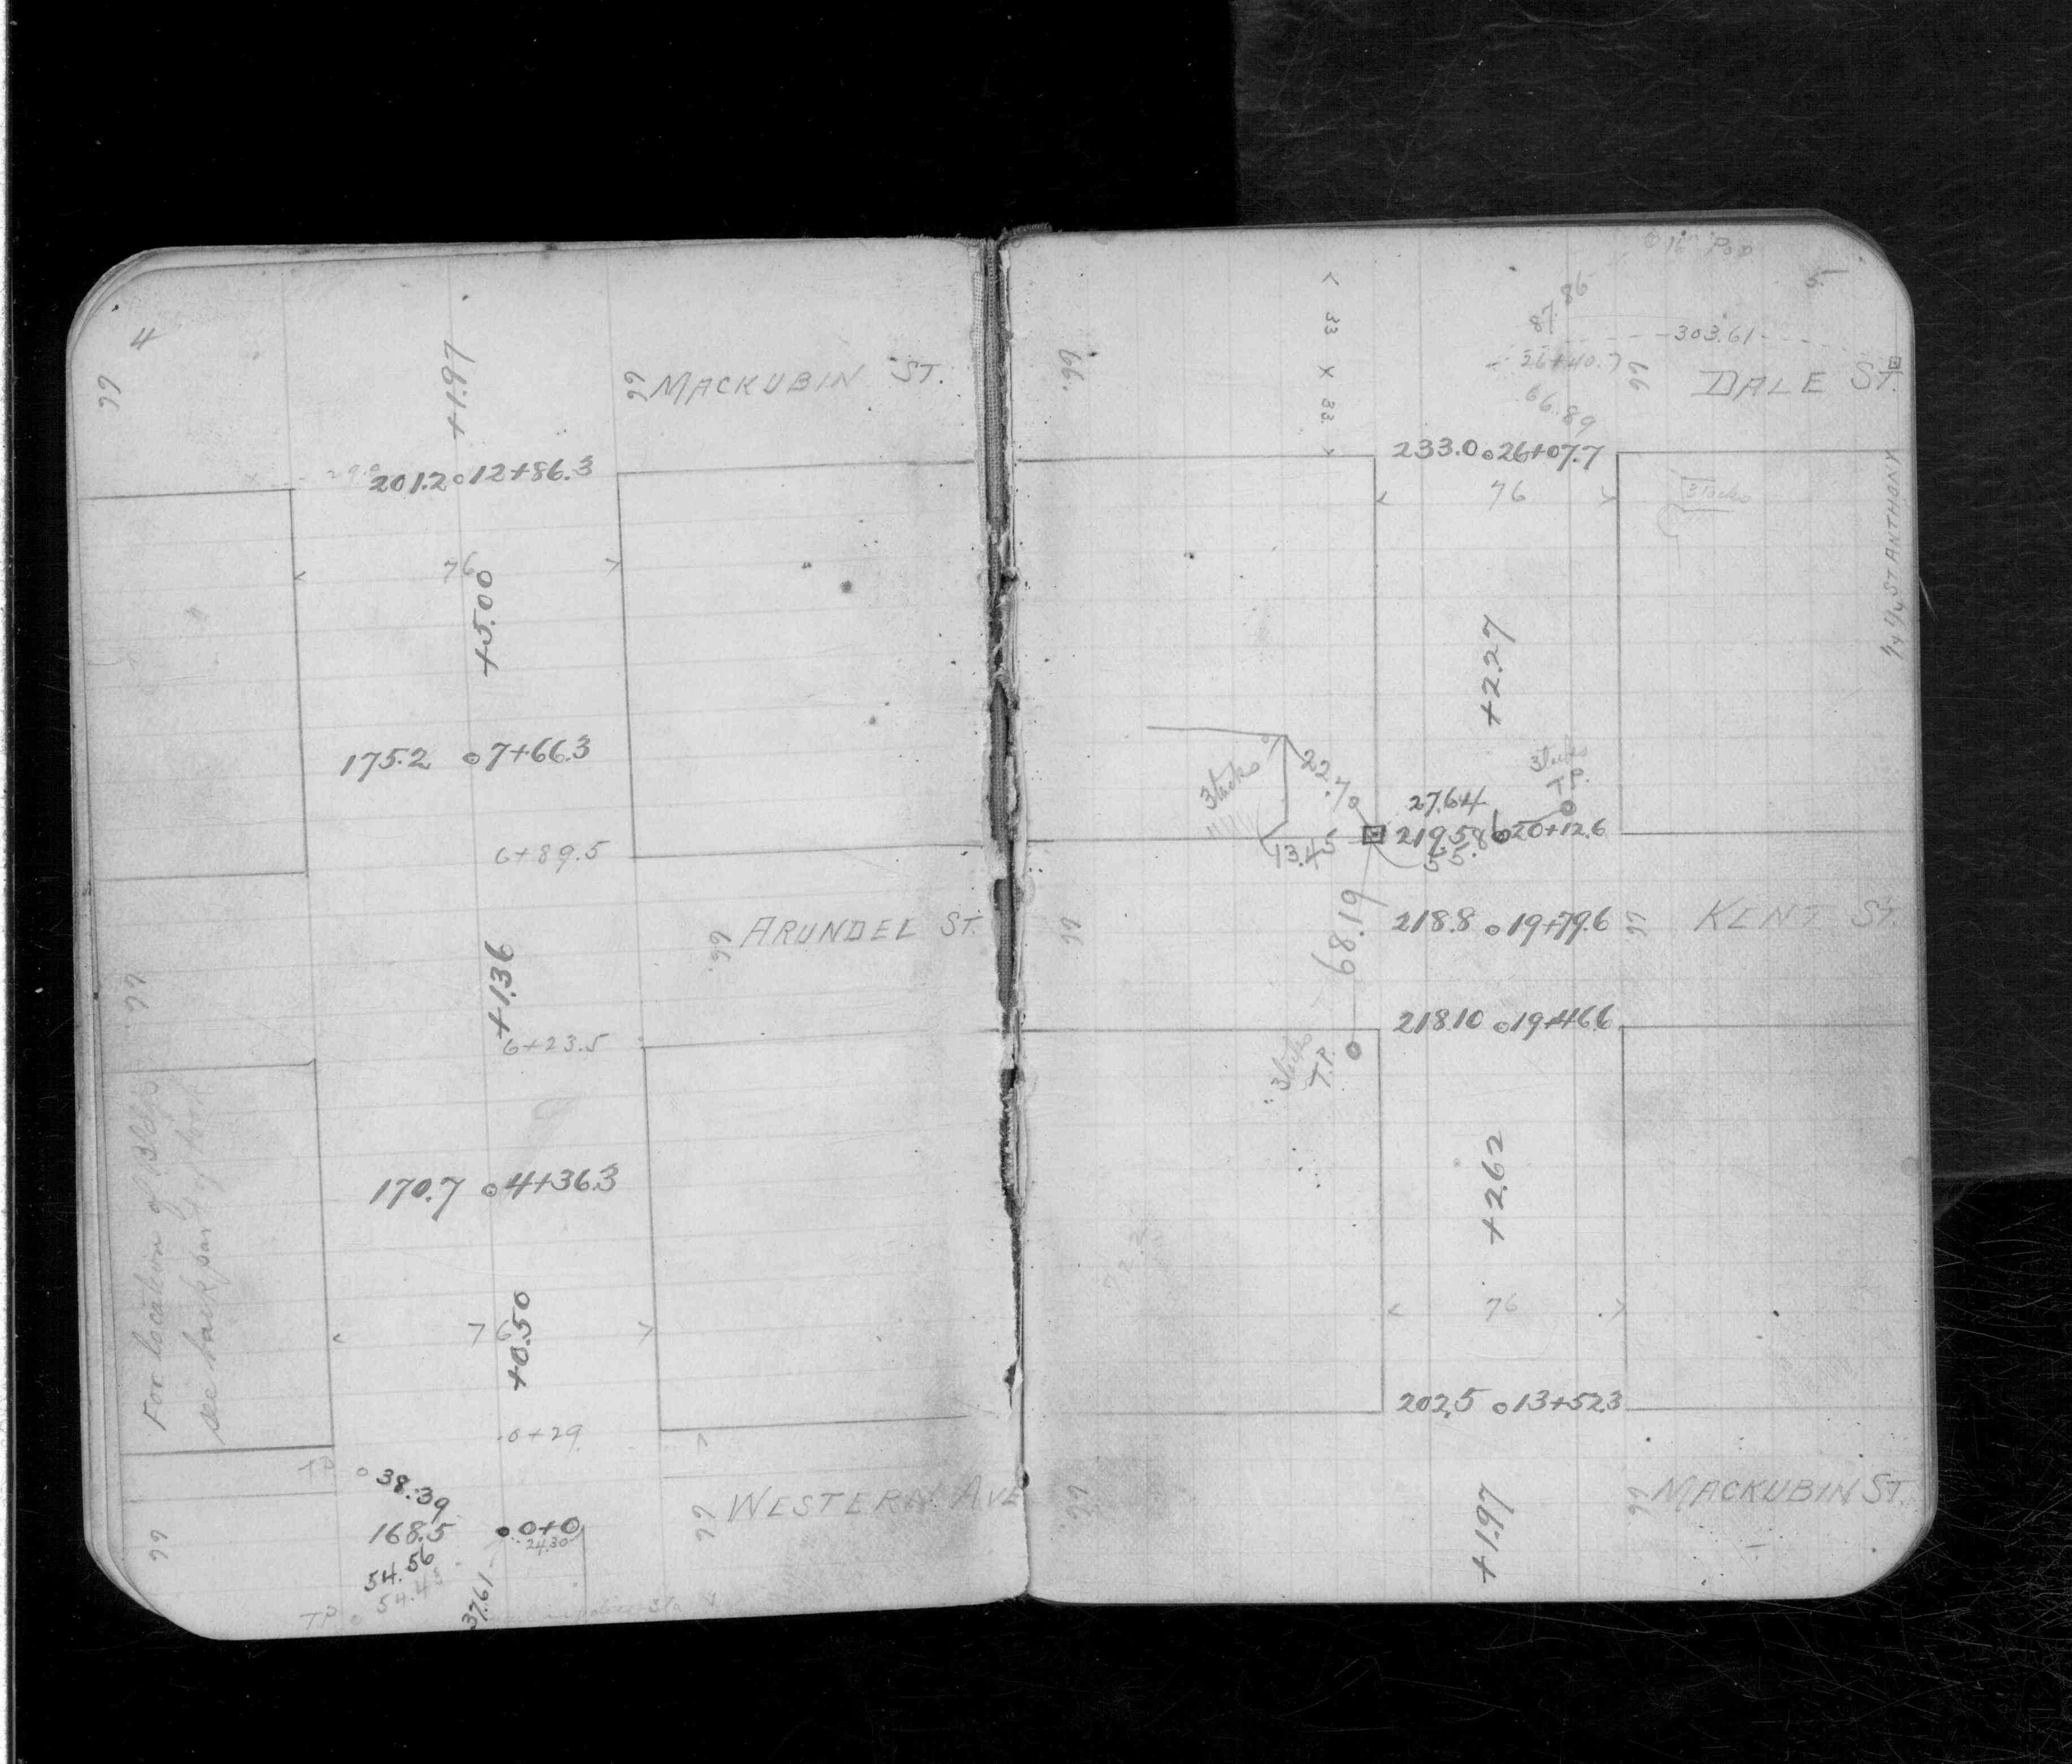 4
66
+1.97
66 MACKUBIN ST.
201.2 12+86.3
76
+5.00
175.2 7+66.3
6+89.5
66 ARUNDEL ST.
66
+1.36
6+23.5
170.7 4+36.3
For location of Bldgs
see back part of book
76
+0.50
0+29
TP 38.39
168.5 0+0
24.30
66 WESTERN AVE
66
54.56
54.45
TP
37.61
5
66
33 X 33
87.86
303.61
26+40.7
66 DALE ST.
66.89
233.0 26+07.7
76
3 Tacks
1/4 1/4 ST ANTHONY
+2.27
3 tacks
22.70
3 tacks
T.P.
27.64
219.5 20+12.6
13.45
55.86
68.19
66
218.8 19+79.6
66 KENT ST.
218.10 19+46.6
3 tacks
T.P.
+2.62
76
202.5 13+52.3
66
66 MACKUBIN ST.
+1.97